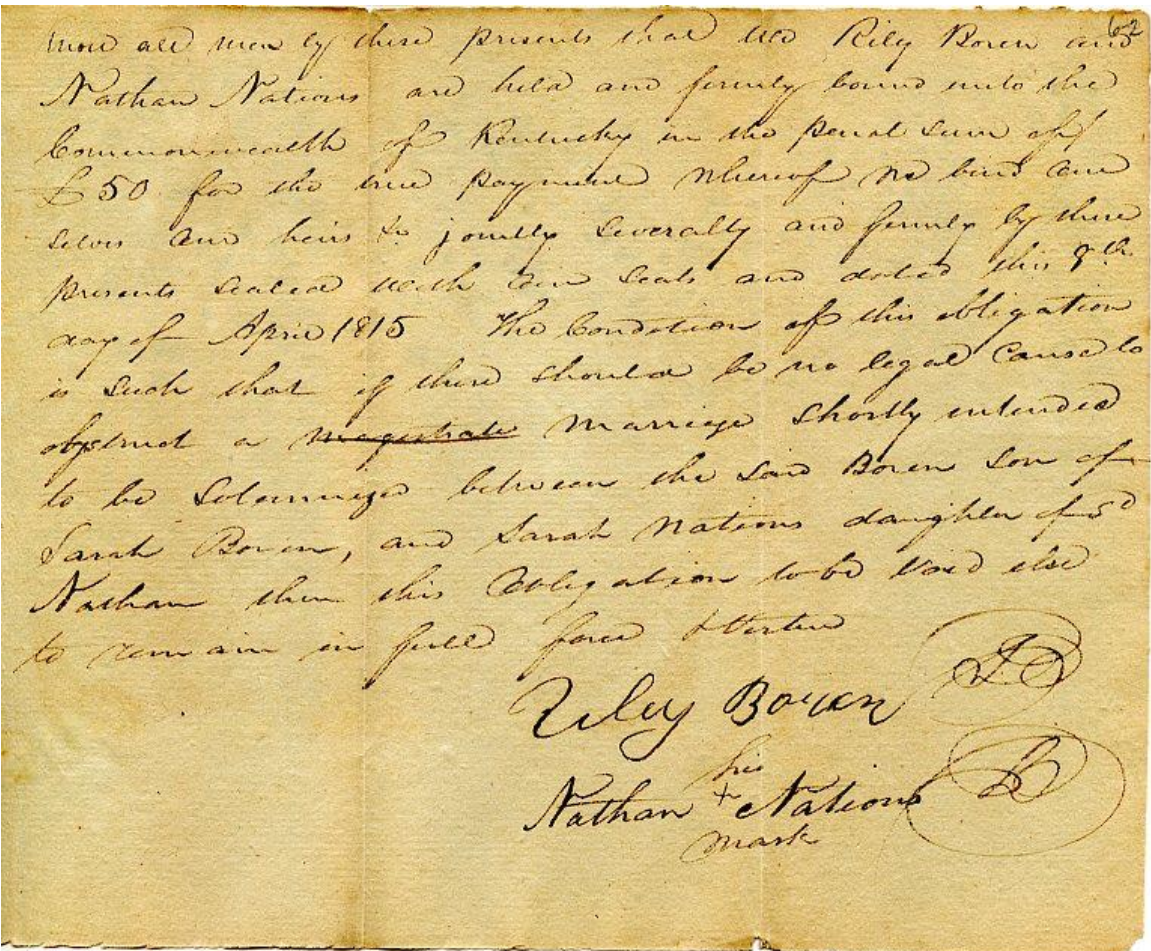 62
Know all men by these presents that we Rily Boren and
Nathan Nations are held and firmly bound unto the
Commonwealth of Kentucky in the penal sum of
£50 for the true payment whereof we bind our
selves our heirs &c jointly severally and firmly by these
presents sealed with our seals and dated this 9th
day of April 1815 The Condition of this obligation
is such that if there should be no legal cause to
obstruct a magistrate marriage shortly intended
to be solemnized between the said Boren son of
Sarah Boren, and Sarah Nations daughter of sd
Nathan then this obligation to be void else
to remain in full force & virtue
Riley Boren
his
Nathan + Nations
mark